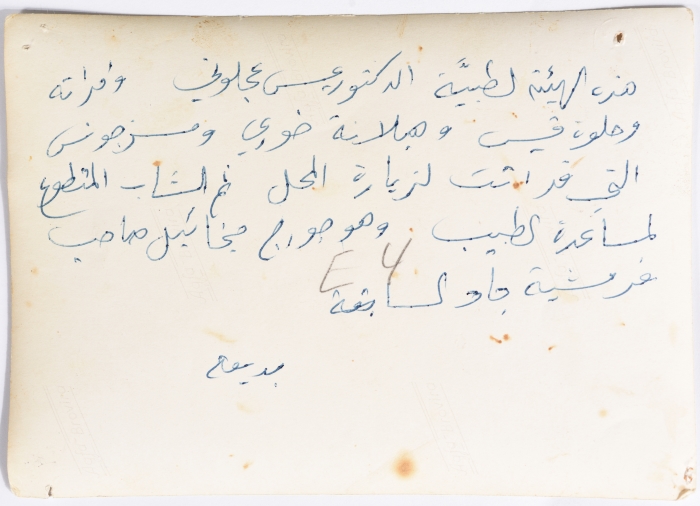 هذه الهيئة لطبيَّة الدكتور عيسى عجلوني وامرأته
وحلوة قيس وهيلانة خوري ومسز جونس
التي قد اتت لزيارة المحل ثم الشاب المتطوع
لمساعدة لطبيب وهو جورج ميخائيل صاحب
السابقة
E 4
بديعه
6